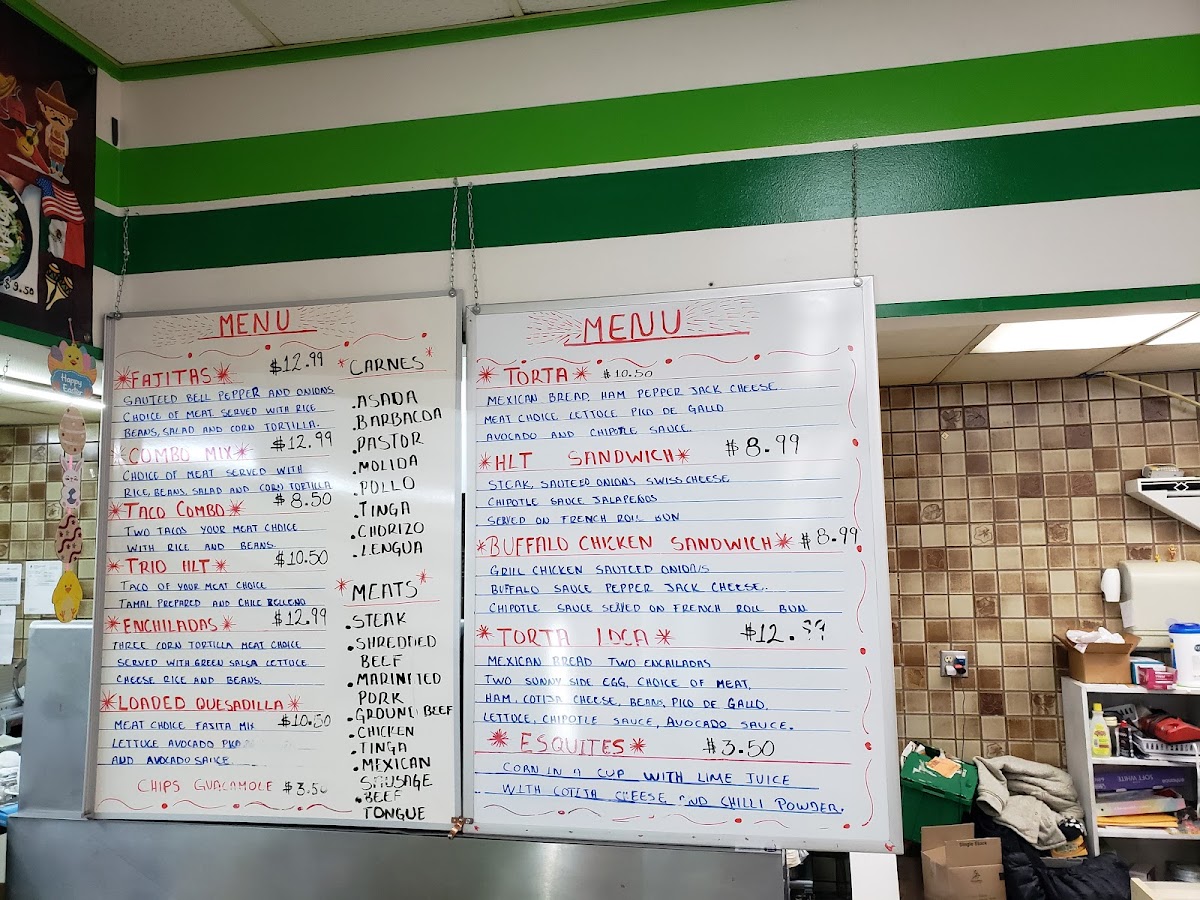 $9.50
Happy
Easter
MENU
*FAJITAS* $12.99
SAUTEED BELL PEPPER AND ONIONS
CHOICE OF MEAT. SERVED WITH RICE
BEANS, SALAD AND CORN TORTILLA.
*COMBO MIX* $12.99
CHOICE OF MEAT SERVED WITH
RICE, BEANS, SALAD AND CORN TORTILLA
*TACO COMBO* $8.50
TWO TACOS YOUR MEAT CHOICE
WITH RICE AND BEANS.
*TRIO HLT* $10.50
TACO OF YOUR MEAT CHOICE
TAMAL PREPARED AND CHILE RELLENO
*ENCHILADAS* $12.99
THREE CORN TORTILLA MEAT CHOICE
SERVED WITH GREEN SALSA LETTUCE
CHEESE RICE AND BEANS.
*LOADED QUESADILLA*
MEAT CHOICE FAJITA MIX $10.50
LETTUCE AVOCADO PICO
AND AVOCADO SAUCE.
CHIPS GUACAMOLE $3.50
*CARNES*
.ASADA
.BARBACOA
.PASTOR
.MOLIDA
.POLLO
.TINGA
.CHORIZO
.LENGUA
*MEATS*
.STEAK
.SHREDDED
BEEF
.MARINIED
PORK
.GROUND BEEF
.CHICKEN
.TINGA
.MEXICAN
SAUSAGE
.BEEF
TONGUE
MENU
*TORTA* $10.50
MEXICAN BREAD, HAM PEPPER JACK CHEESE
MEAT CHOICE LETTUCE PICO DE GALLO
AVOCADO AND CHIPOTLE SAUCE.
*HLT SANDWICH* $8.99
STEAK, SAUTEED ONIONS SWISS CHEESE
CHIPOTLE SAUCE JALAPEÑOS
SERVED ON FRENCH ROLL BUN
*BUFFALO CHICKEN SANDWICH* $8.99
GRILL CHICKEN SAUTEED ONIONS
BUFFALO SAUCE PEPPER JACK CHEESE.
CHIPOTLE SAUCE SERVED ON FRENCH ROLL BUN
*TORTA LOCA* $12.99
MEXICAN BREAD TWO ENXAILADAS
TWO SUNNY SIDE EGG, CHOICE OF MEAT,
HAM, COTIJA CHEESE, BEANS, PICO DE GALLO,
LETTUCE, CHIPOTLE SAUCE, AVOCADO SAUCE.
*ESQUITES* $3.50
CORN IN A CUP WITH LIME JUICE
WITH COTIJA CHEESE AND CHILLI POWDER.